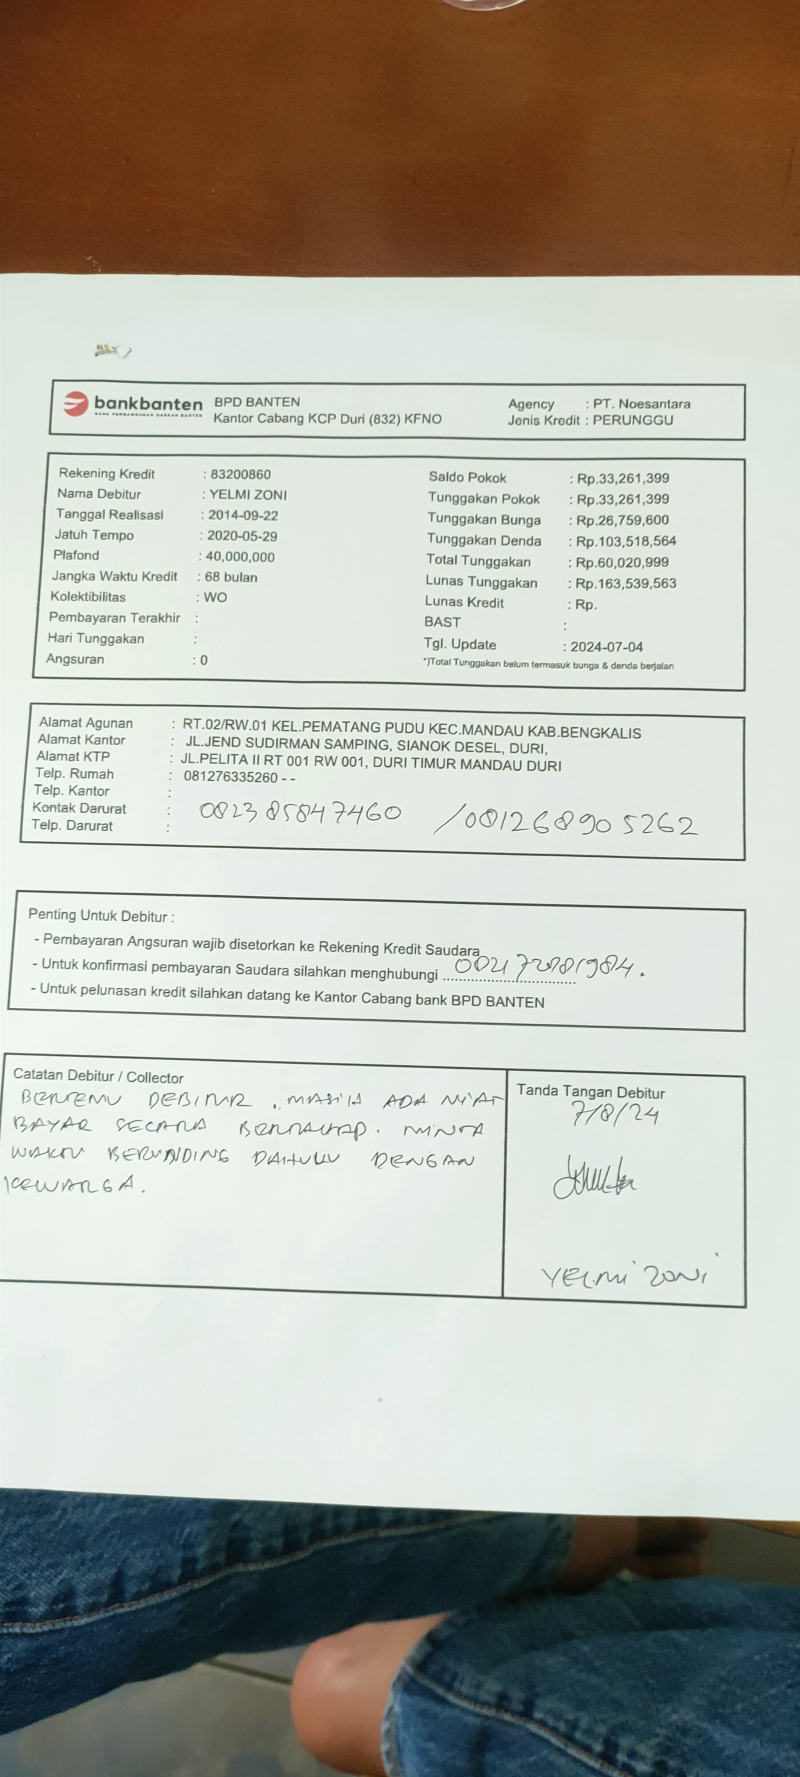 bankbanten BPD BANTEN Agency : PT. Noesantara
BANK PEMBANGUNAN DAERAH BANTEN Kantor Cabang KCP Duri (832) KFNO Jenis Kredit : PERUNGGU
Rekening Kredit : 83200860 Saldo Pokok : Rp.33,261,399
Nama Debitur : YELMI ZONI Tunggakan Pokok : Rp.33,261,399
Tanggal Realisasi : 2014-09-22 Tunggakan Bunga : Rp.26,759,600
Jatuh Tempo : 2020-05-29 Tunggakan Denda : Rp.103,518,564
Plafond : 40,000,000 Total Tunggakan : Rp.60,020,999
Jangka Waktu Kredit : 68 bulan Lunas Tunggakan : Rp.163,539,563
Kolektibilitas : WO Lunas Kredit : Rp.
Pembayaran Terakhir : BAST :
Hari Tunggakan : Tgl. Update : 2024-07-04
Angsuran : 0 *)Total Tunggakan belum termasuk bunga & denda berjalan
Alamat Agunan : RT.02/RW.01 KEL.PEMATANG PUDU KEC.MANDAU KAB.BENGKALIS
Alamat Kantor : JL.JEND SUDIRMAN SAMPING, SIANOK DESEL, DURI,
Alamat KTP : JL.PELITA II RT 001 RW 001, DURI TIMUR MANDAU DURI
Telp. Rumah : 081276335260 - -
Telp. Kantor :
Kontak Darurat : 082385847460 /081268905262
Telp. Darurat :
Penting Untuk Debitur :
- Pembayaran Angsuran wajib disetorkan ke Rekening Kredit Saudara
- Untuk konfirmasi pembayaran Saudara silahkan menghubungi
- Untuk pelunasan kredit silahkan datang ke Kantor Cabang bank BPD BANTEN
Catatan Debitur / Collector
BERTEMU DEBITUR . MASIH ADA NIAT
BAYAR SECARA BERTAHAP. MINTA
WAKTU BERUNDING DAHULU DENGAN
KEWARGA.
Tanda Tangan Debitur
7/8/24
YELMI ZONI